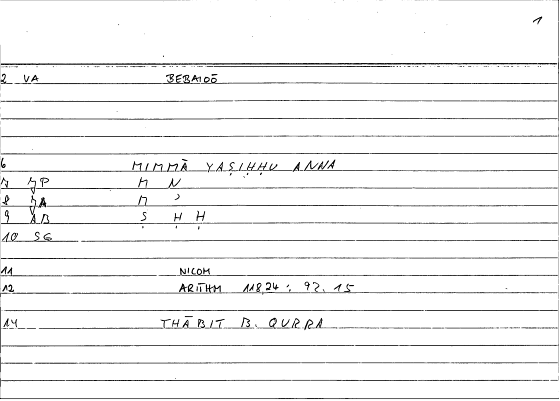 1
2 VA BEBAIOŌ
6 MIMMĀ YAṢIḤḤU ANNA
7 ȜP M N
8 ȜA M ʾ
9 AB Ṣ Ḥ Ḥ
10 SG
11 NICOM
12 ARITHM 118,24 : 92. 15
14 THĀBIT B. QURRA